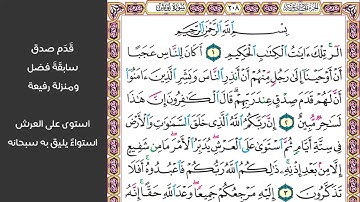 ٢٠٨
بِسْمِ اللَّهِ الرَّحْمَٰنِ الرَّحِيمِ
الٓر تِلْكَ ءَايَٰتُ ٱلْكِتَٰبِ ٱلْحَكِيمِ ١ أَكَانَ لِلنَّاسِ عَجَبًا
أَنْ أَوْحَيْنَآ إِلَىٰ رَجُلٍ مِّنْهُمْ أَنْ أَنذِرِ ٱلنَّاسَ وَبَشِّرِ ٱلَّذِينَ ءَامَنُوٓا۟
أَنَّ لَهُمْ قَدَمَ صِدْقٍ عِندَ رَبِّهِمْ قَالَ ٱلْكَٰفِرُونَ إِنَّ هَٰذَا
لَسَٰحِرٌ مُّبِينٌ ٢ إِنَّ رَبَّكُمُ ٱللَّهُ ٱلَّذِى خَلَقَ ٱلسَّمَٰوَٰتِ وَٱلْأَرْضَ
فِى سِتَّةِ أَيَّامٍ ثُمَّ ٱسْتَوَىٰ عَلَى ٱلْعَرْشِ يُدَبِّرُ ٱلْأَمْرَ مَا مِن شَفِيعٍ
إِلَّا مِنۢ بَعْدِ إِذْنِهِۦ ذَٰلِكُمُ ٱللَّهُ رَبُّكُمْ فَٱعْبُدُوهُ أَفَلَا
تَذَكَّرُونَ ٣ إِلَيْهِ مَرْجِعُكُمْ جَمِيعًا وَعْدَ ٱللَّهِ حَقًّا إِنَّهُۥ
قَدَم صدق
سابقَةَ فضل
ومنزلة رفيعة
استوى على العرش
استواءً يليق به سبحانه